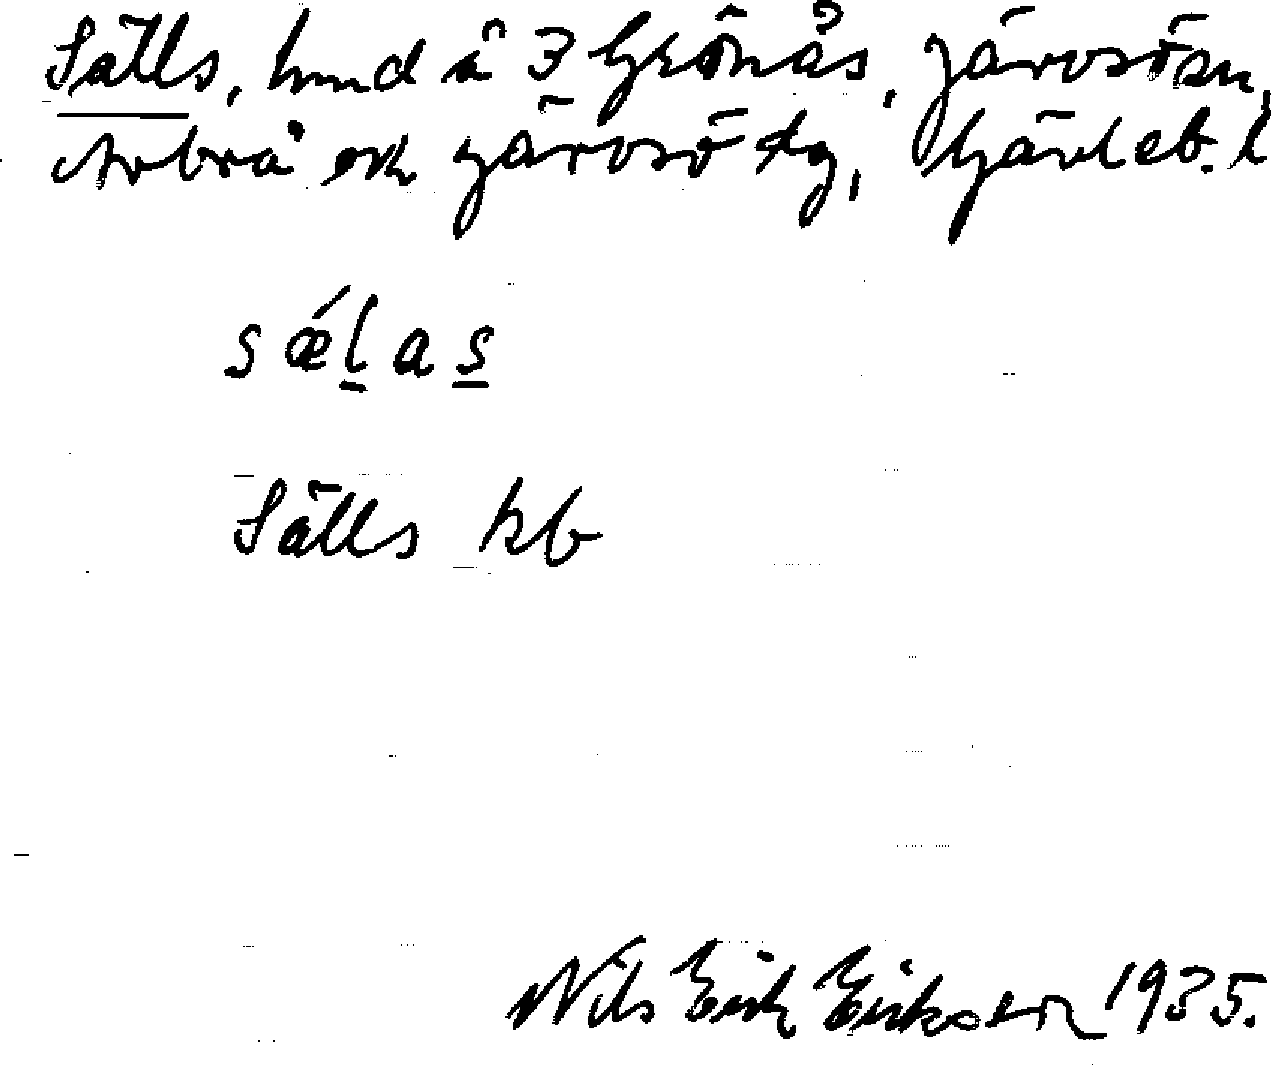 Sälls, hmd å 3 Grönås, Järvsö sn,
Arbrå och Järvsö tg, Gävleb. l
s ǽ l̲ a s̲
Sälls kb
Nils Erik Erikson 1935.